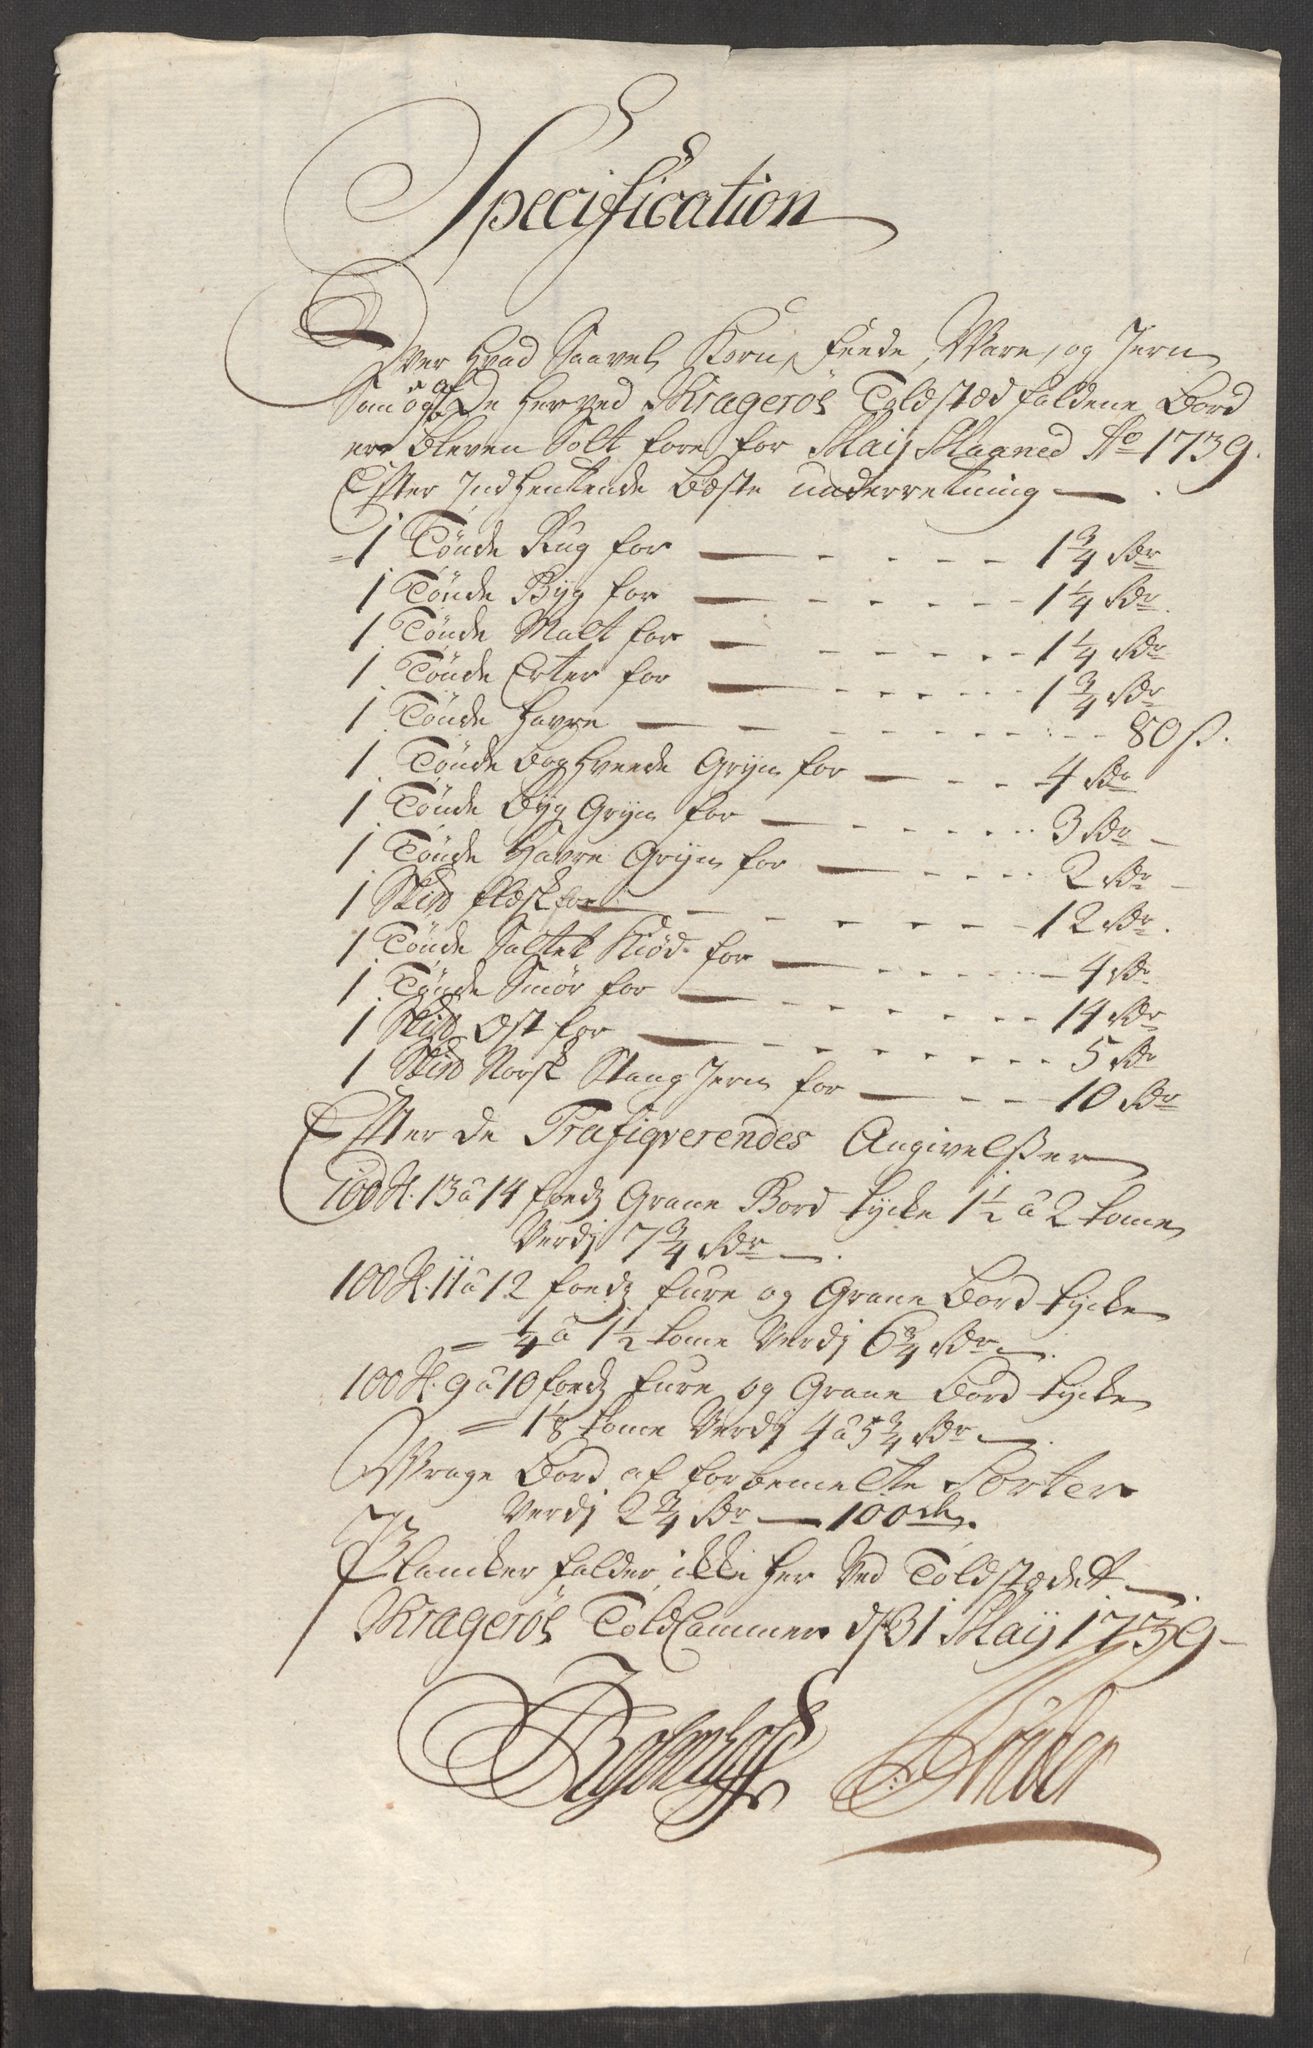 Specification
Over Hvad Saavel Korn, Feede, Ware, og Jern
Som og af De Herved Kragerøes Toldsted faldene Bord
ere bleven Solt fore for Maij Maaned Ao 1739.
Efter Indhentende Beste underretning
1 Tönde Rug for 1 3/4 Rdr
1 Tönde Byg for 1 1/4 Rdr
1 Tönde Malt for 1 1/4 Rdr
1 Tönde Erter for 1 3/4 Rdr
1 Tönde Havre 80 s.
1 Tönde Boghveede Gryn for 4 Rdr
1 Tönde Byg Gryn for 3 Rdr
1 Tönde Havre Gryn for 2 Rdr
1 Sk℔ flesk for 12 Rdr
1 Tönde Saltet Kiöd for 4 Rdr
1 Tönde Smör for 14 Rdr
1 Sk℔ Ost for 5 Rdr
1 Sk℔ Norsk Stang Jern for 10 Rdr
Efter de Trafiqverendes Angivelßer
100 St. 13 â 14 foedz Grane Bord tycke 1 1/2 â 2 tome
Verdj 7 3/4 Rdr
100 St. 11 â 12 foedz fure og Grane Bord tycke
1/4 â 1 1/2 tome Verdj 6 3/4 Rdr
100 St. 9 â 10 foedz fure og Grane Bord tycke
1 1/8 tome Verdj 4 â 5 3/4 Rdr
Wrage Bord af forbemelte Sorter
Verdj 2 3/4 Rdr 100de.
Plancker falder ikke her Ved Toldstedet
Kragerøes Told Cammer d 31 Maij 1739